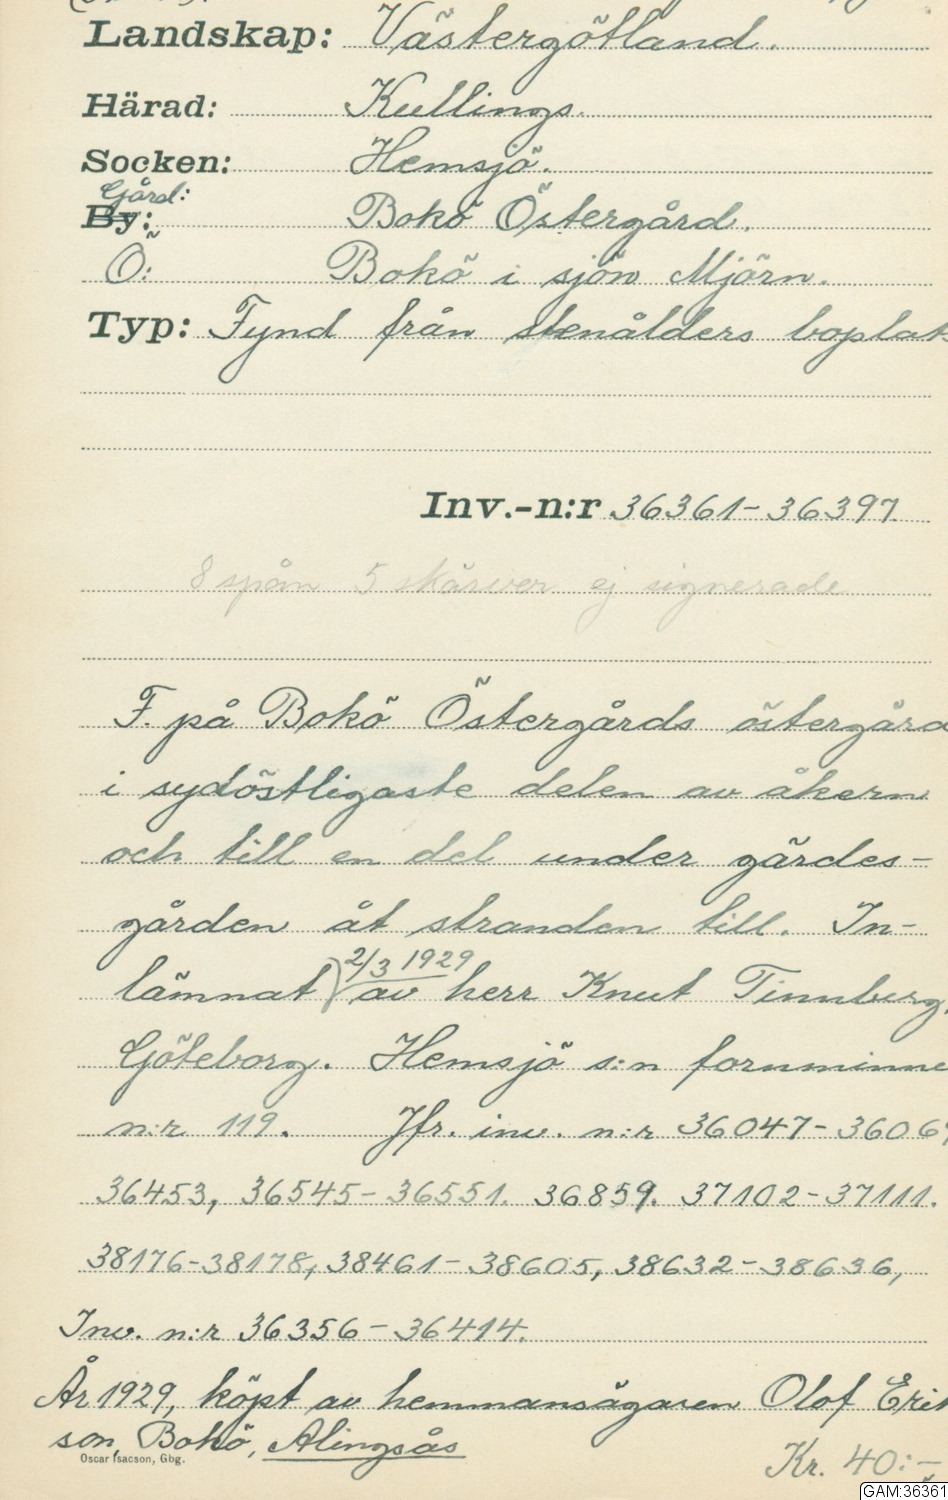 Landskap: Västergötland.
Härad: Kullings.
Socken: Hemsjö.
Gård:
By: Bokö Östergård.
Ö: Bokö i sjön Mjörn.
Typ: Fynd från stenålders boplats
Inv.-n:r 36361-36397
8 spån 5 skärvor ej signerade
F. på Bokö Östergårds östergärd
i sydöstligaste delen av åkern
och till en del under gärdes-
gården åt stranden till. In-
2/3 1929
lämnat av herr Knut Tinnberg,
Göteborg. Hemsjö s:n fornminne
n:r 119. Jfr. inv. n:r 36047-3606
36453, 36545-36551. 36859. 37102-37111.
38176-38178, 38461-38605, 38632-38636,
Inv. n:r 36356-36414.
År 1929, köpt av hemmansägaren Olof Erik
son, Bokö, Alingsås
Oscar Isacson, Gbg.
Kr. 40:-
GAM:36361